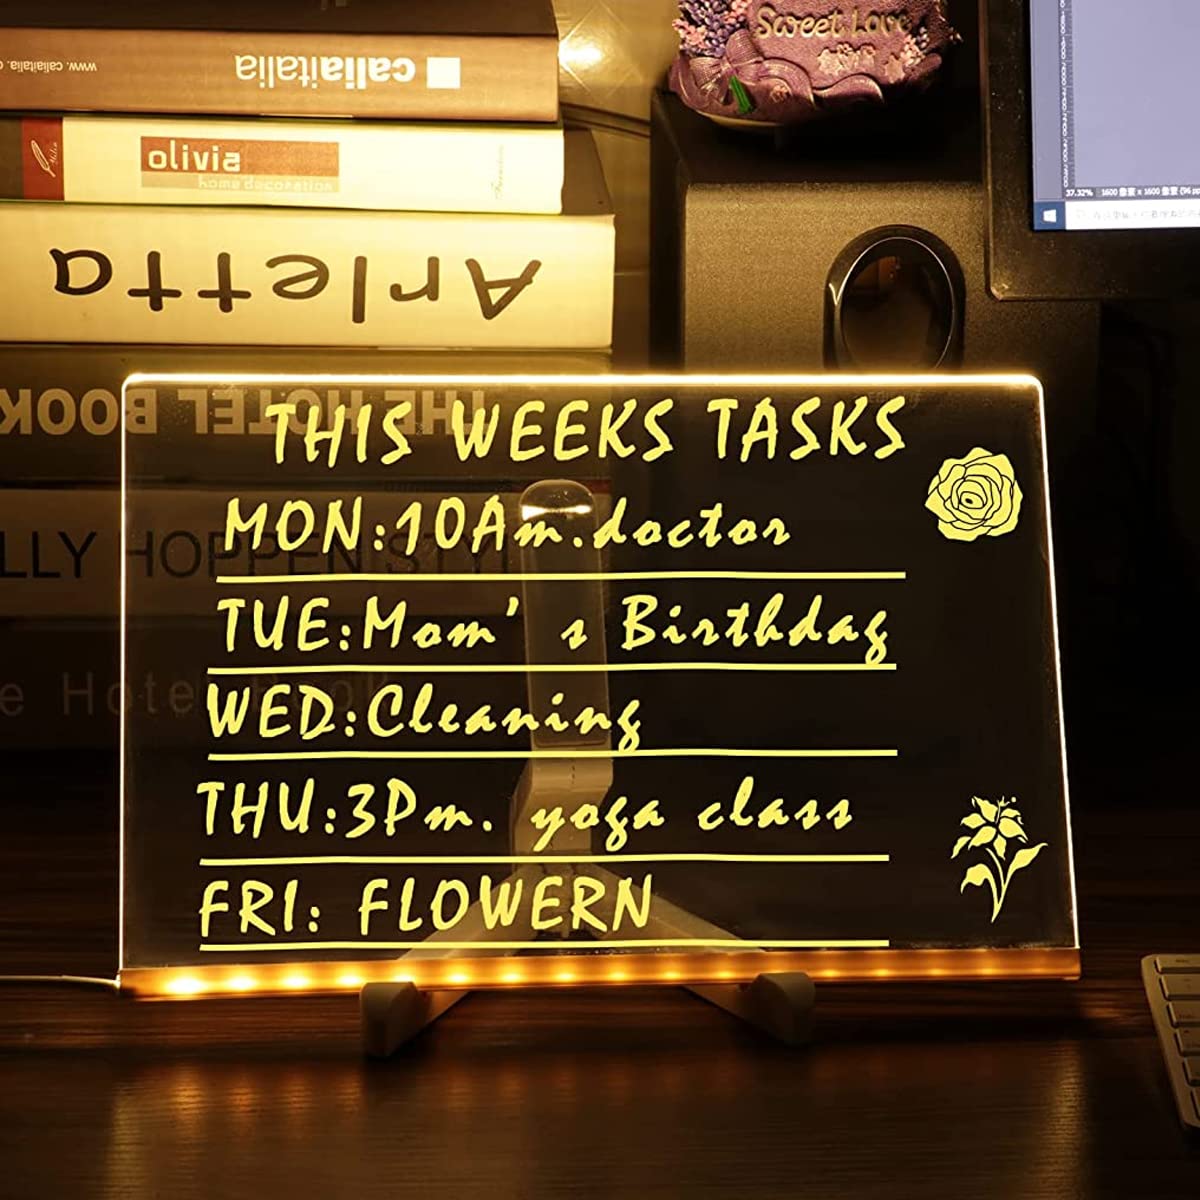 www.caliaitalia
caliaitalia
olivia
home decoration
Arletta
THE HOTEL BOOK
LLY HOPPEN STY
e Hotel Book
Sweet Love
37.32%
1600 像素 x 1600 像素 (96 pp
THIS WEEKS TASKS
MON:10Am.doctor
TUE:Mom's Birthday
WED:Cleaning
THU:3Pm. yoga class
FRI: FLOWERN